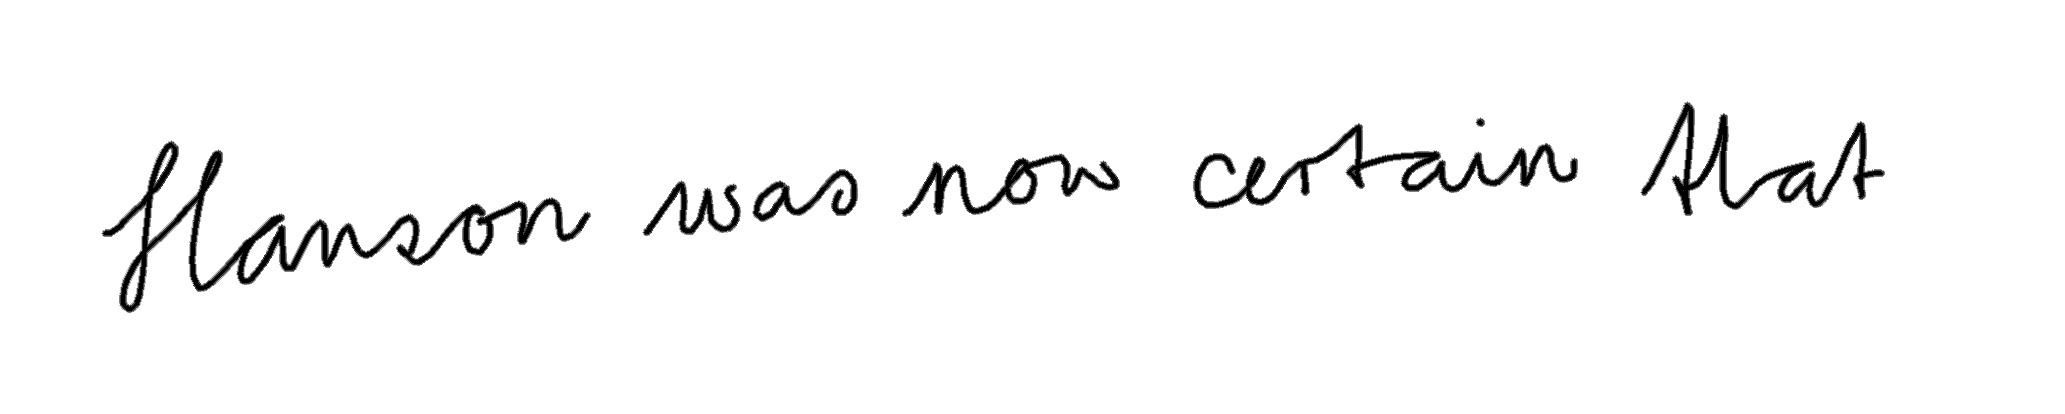 Hanson was now certain that